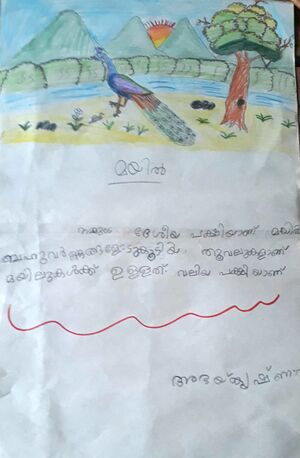 മയിൽ
നമ്മുടെ ദേശീയ പക്ഷിയാണ് മയിൽ
ബഹുവർണ്ണങ്ങളോടുകൂടിയ തൂവലുകളാണ്
മയിലുകൾക്ക് ഉള്ളത്. വലിയ പക്ഷിയാണ്
അഭയ്കൃഷ്ണ